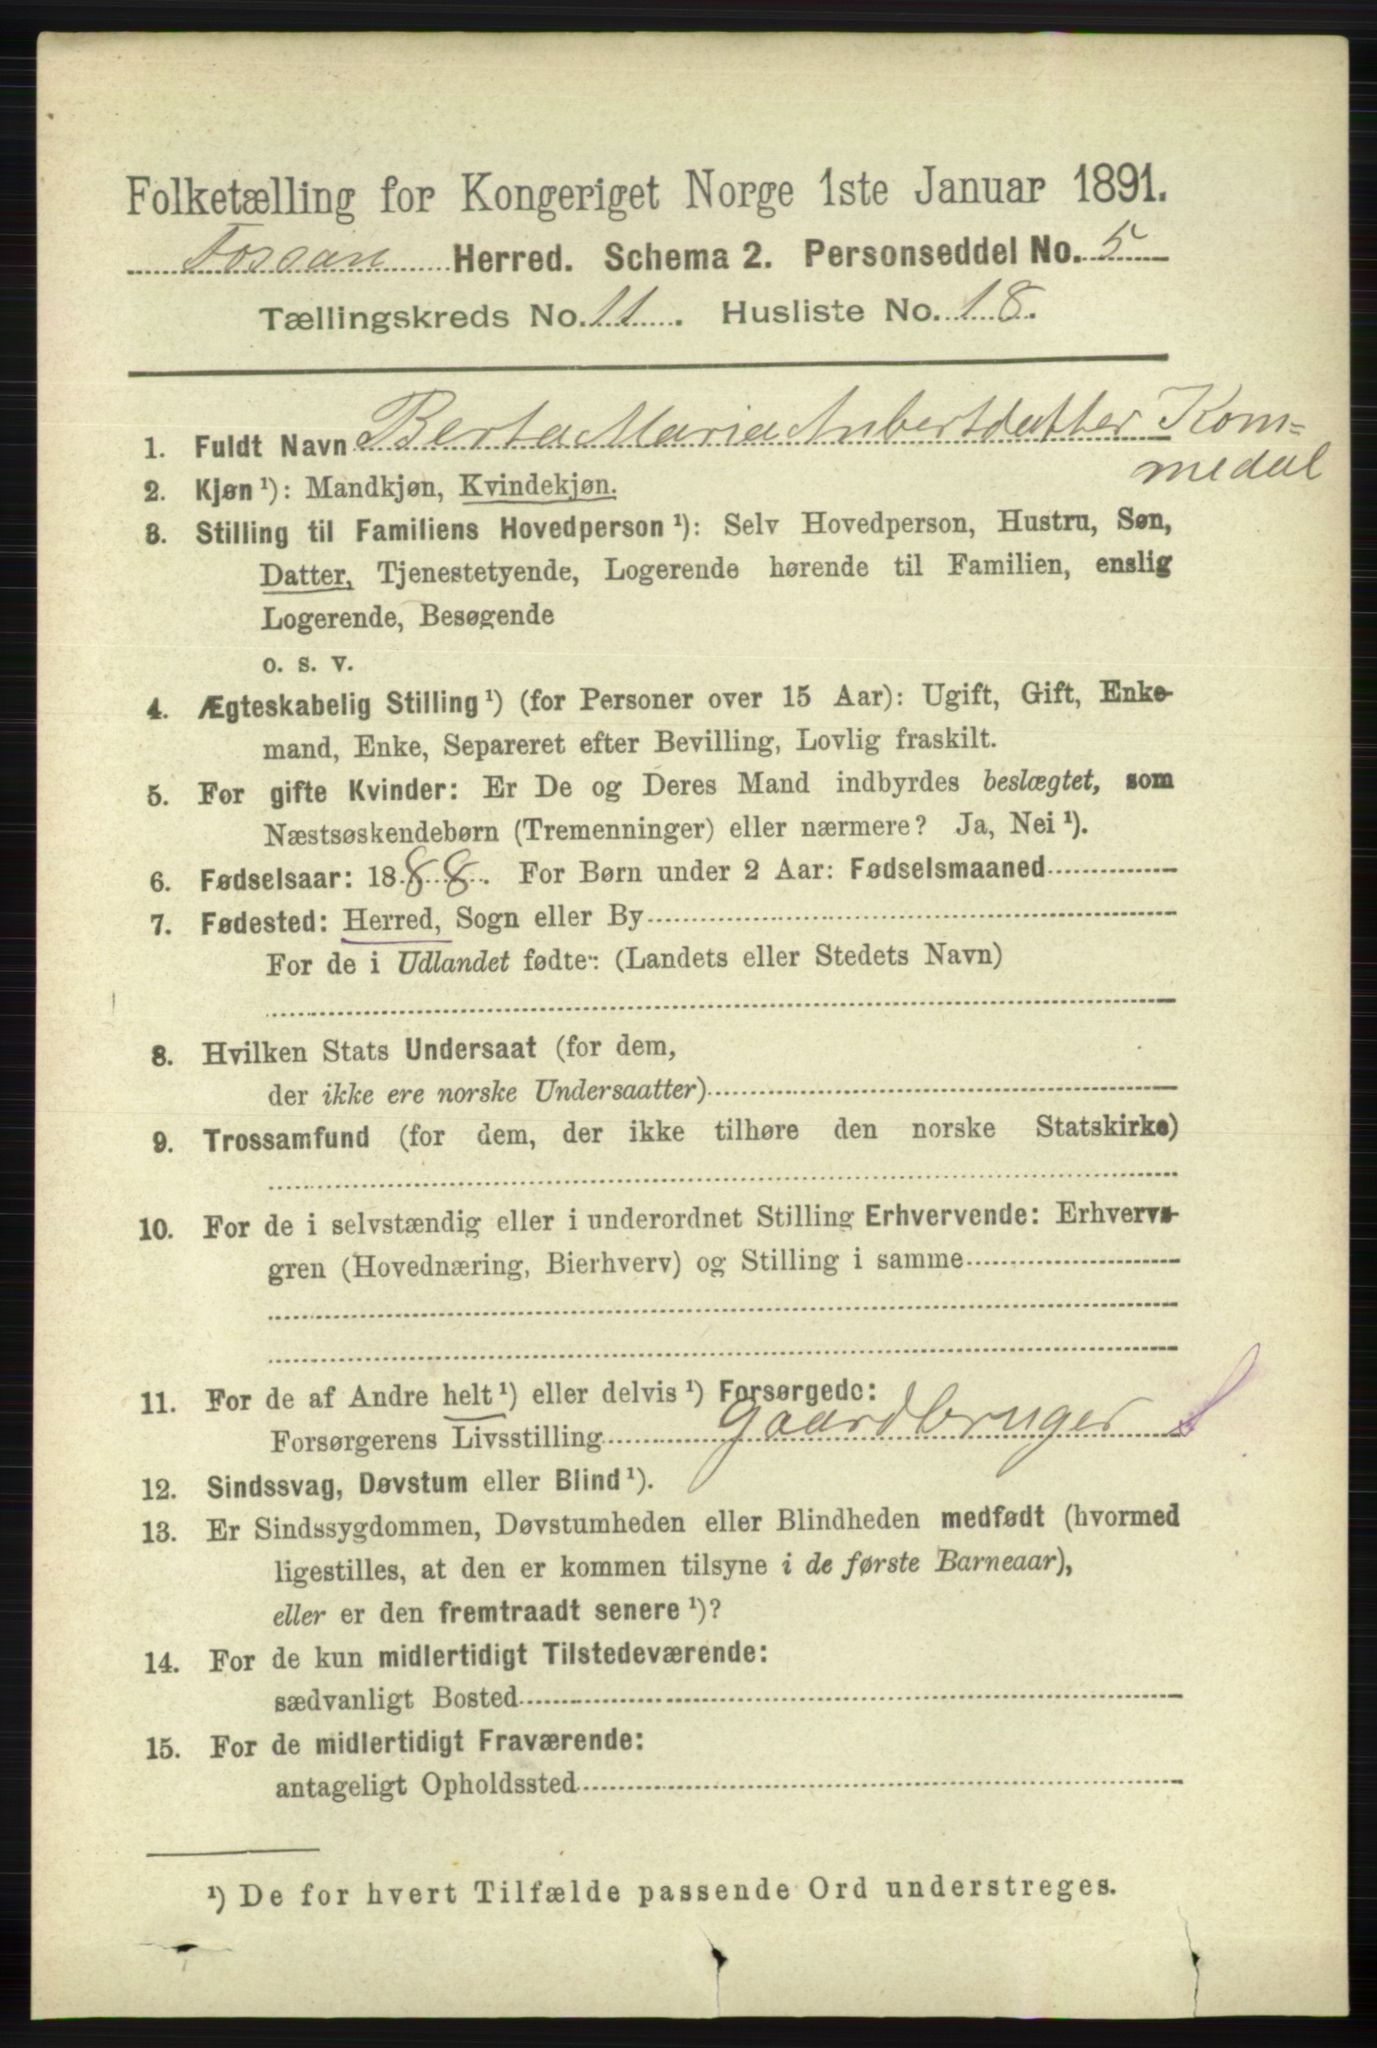 Folketælling for Kongeriget Norge 1ste Januar 1891.
Fossan Herred. Schema 2. Personseddel No. 5
Tællingskreds No. 11. Husliste No. 18.
1. Fuldt Navn Berta Maria Anbertdatter Kom=
medal
2. Kjøn ¹): Mandkjøn, Kvindekjøn.
3. Stilling til Familiens Hovedperson ¹): Selv Hovedperson, Hustru, Søn,
Datter, Tjenestetyende, Logerende hørende til Familien, enslig
Logerende, Besøgende
o. s. v.
4. Ægteskabelig Stilling ¹) (for Personer over 15 Aar): Ugift, Gift, Enke-
mand, Enke, Separeret efter Bevilling, Lovlig fraskilt.
5. For gifte Kvinder: Er De og Deres Mand indbyrdes beslægtet, som
Næstsøskendebørn (Tremenninger) eller nærmere? Ja, Nei ¹).
6. Fødselsaar: 1888. For Børn under 2 Aar: Fødselsmaaned
7. Fødested: Herred, Sogn eller By
For de i Udlandet fødte: (Landets eller Stedets Navn)
8. Hvilken Stats Undersaat (for dem,
der ikke ere norske Undersaatter)
9. Trossamfund (for dem, der ikke tilhøre den norske Statskirke)
10. For de i selvstændig eller i underordnet Stilling Erhvervende: Erhvervs-
gren (Hovednæring, Bierhverv) og Stilling i samme
11. For de af Andre helt ¹) eller delvis ¹) Forsørgede:
Forsørgerens Livsstilling Gaardbruger
12. Sindssvag, Døvstum eller Blind ¹).
13. Er Sindssygdommen, Døvstumheden eller Blindheden medfødt (hvormed
ligestilles, at den er kommen tilsyne i de første Barneaar),
eller er den fremtraadt senere ¹)?
14. For de kun midlertidigt Tilstedeværende:
sædvanligt Bosted
15. For de midlertidigt Fraværende:
antageligt Opholdssted
¹) De for hvert Tilfælde passende Ord understreges.